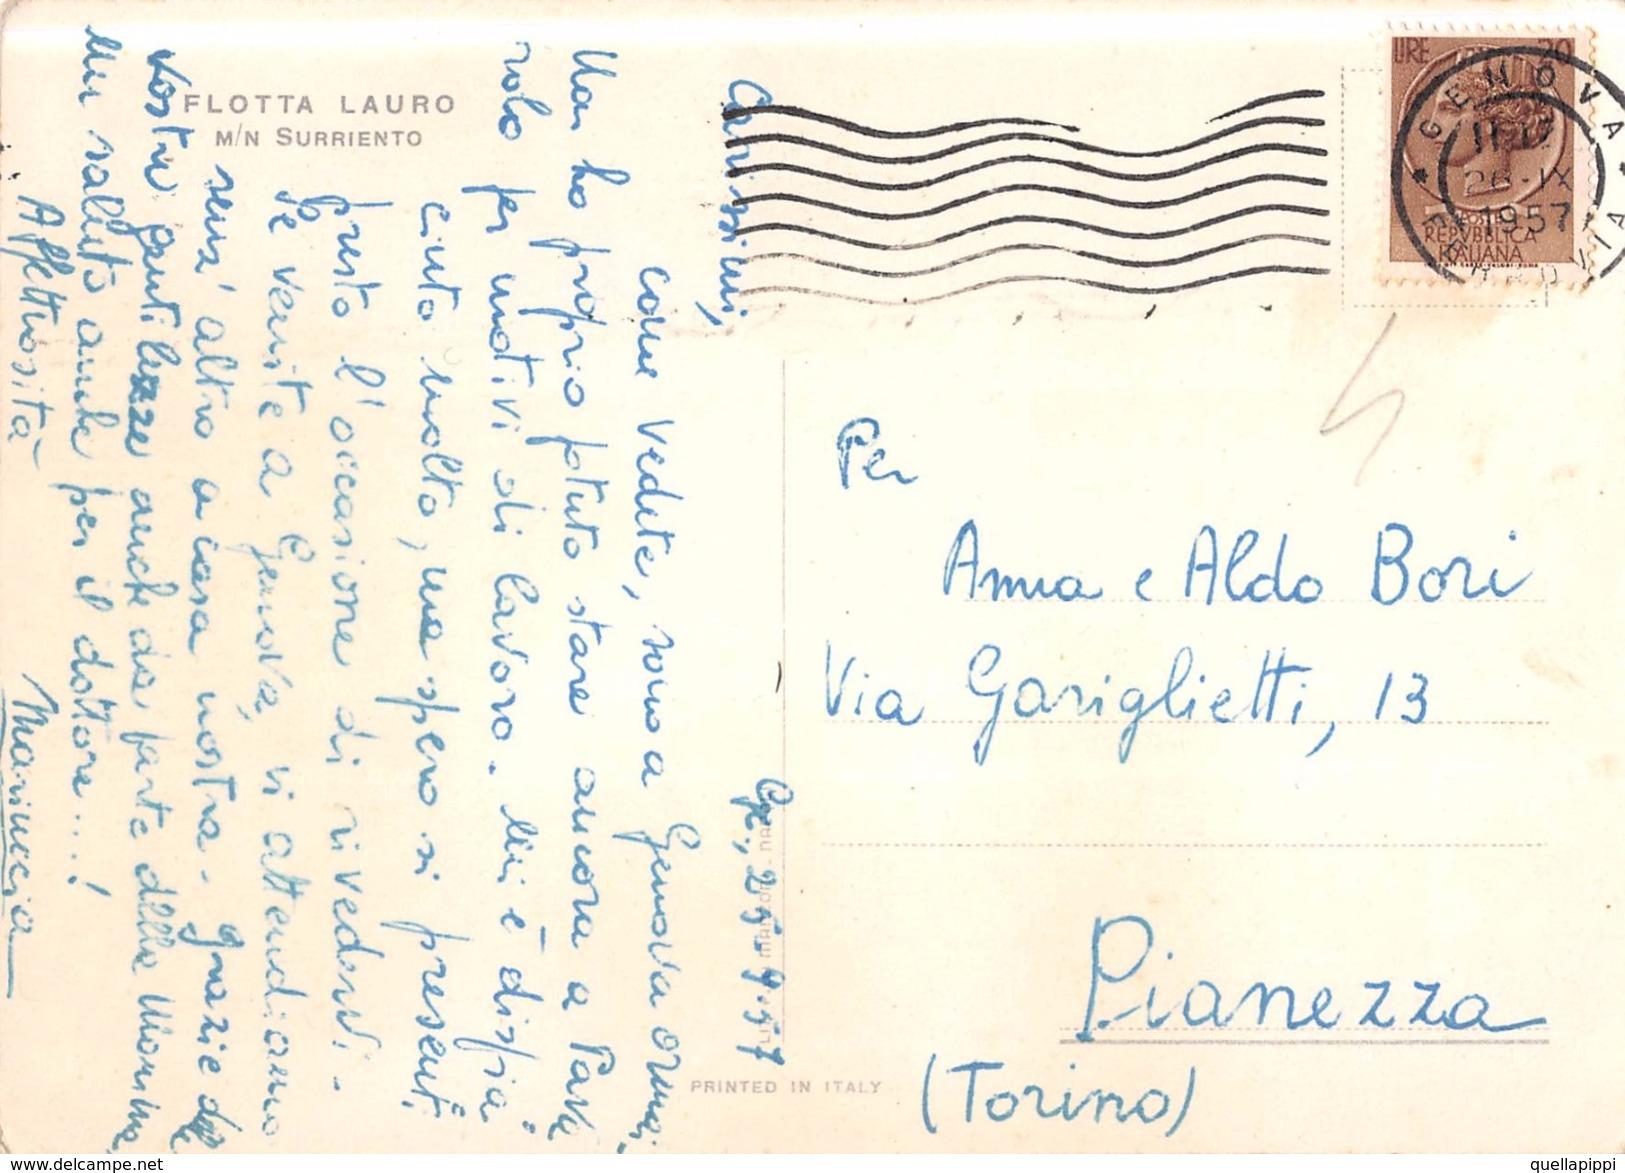 FLOTTA LAURO
M/N SURRIENTO
Ge., 25.9.57
Carissimi,
come vedete, sono a Genova ormai.
Non ho proprio potuto stare ancora a Pave
rolo per motivi di lavoro. Mi è dispia
ciuto molto, ma spero si presenti
presto l'occasione di rivederVi.
Se venite a Genova, vi attendiamo
senz'altro a casa nostra. Grazie delle
Vostre gentilezze anche da parte della Mamma
Un saluto anche per il dottore...!
Affettuosità
Mariuccia
LIRE 20
POSTE
REPVBBLICA
ITALIANA
GENOVA
FERROVIA
26-IX
1957
Per
Anna e Aldo Bori
Via Gariglietti, 13
Pianezza
(Torino)
PRINTED IN ITALY
quellapippi